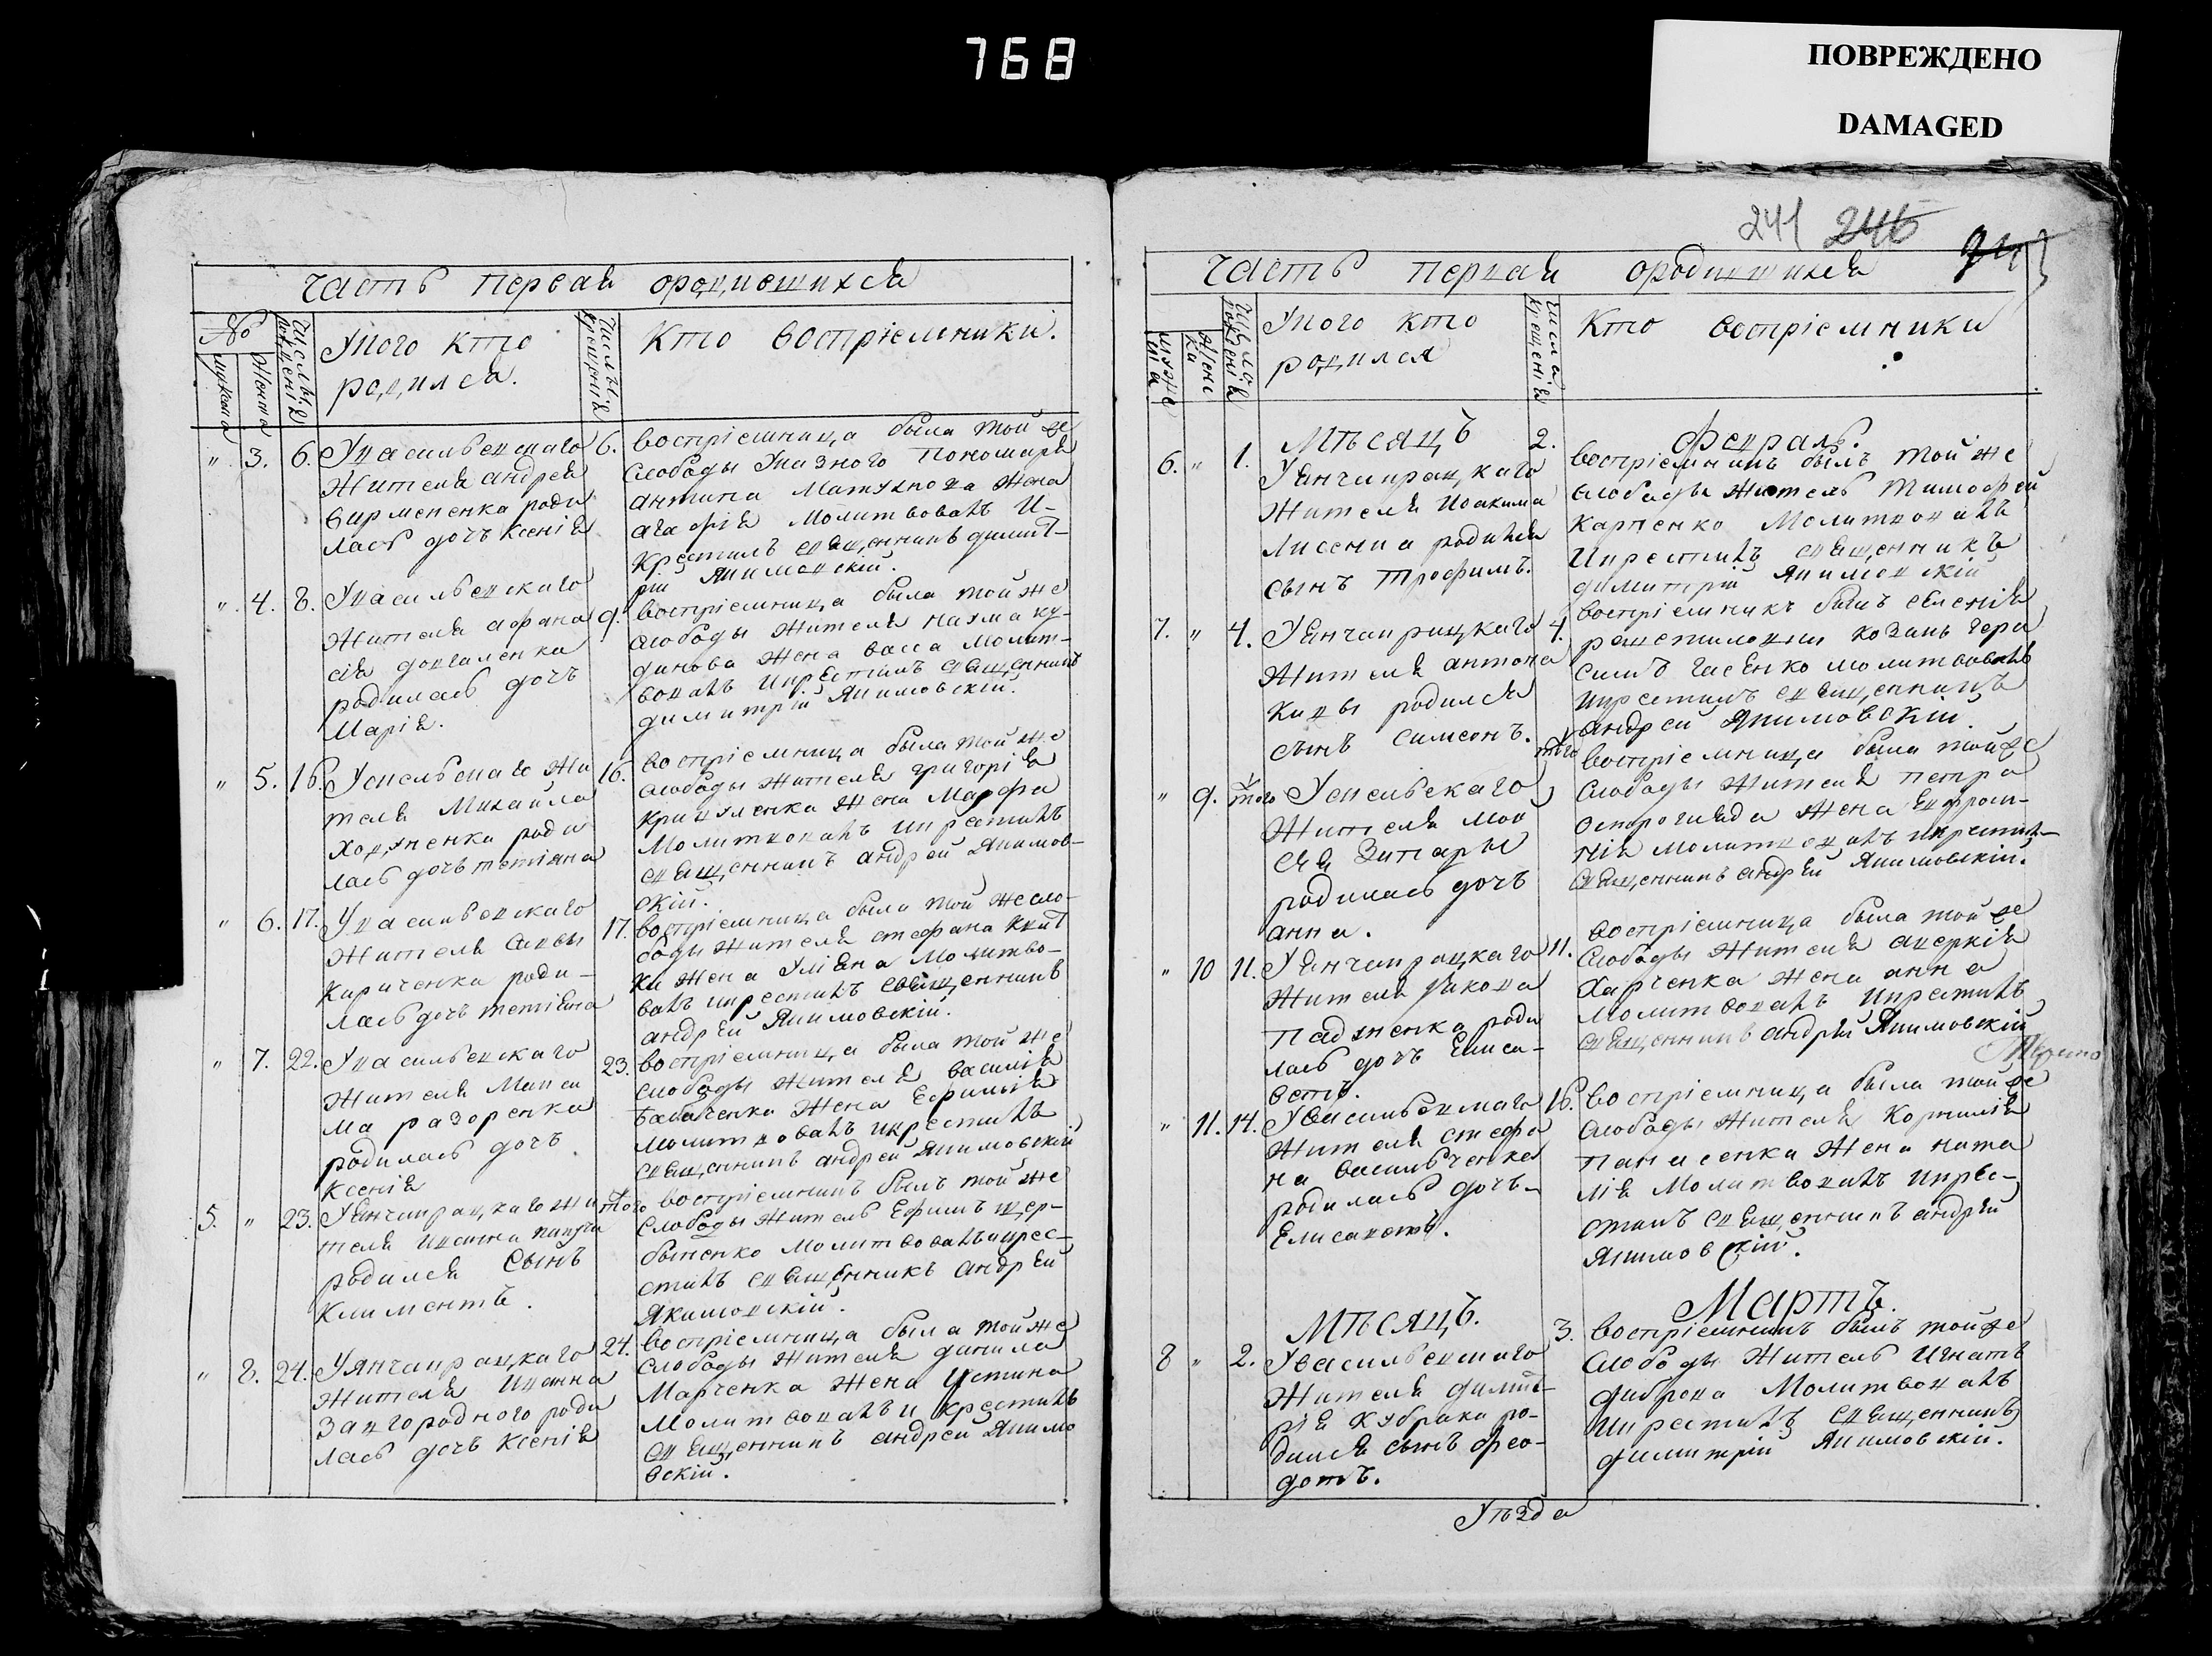 768
ПОВРЕЖДЕНО
DAMAGED
241 246
Часть первая ородившихся
№
мужска
женска
Числы рожденія
Укого кто
родился.
Числы крещенія
Кто воспріемники.
" 3. 6. Увасильевскаго
жителя андрея
роди
лась дочь Ксенія
6. воспріемница была той же
слободы указного Пономаря
антипа Матухнова жена
агафія Молитвовалъ и
крестилъ священникъ димит-
рій Якимовскій.
" 4. 8. Увасильевскаго
жителя афана
сія довгаленка
родилась дочь
Марія.
9. воспріемница была той же
слободы жителя наума ку-
динова жена васса Молит-
вовалъ икрестилъ священникъ
димитрій Якимовскій.
" 5. 16. Усисьвскаго жи
теля Михайла
Ходуненка роди
лась дочь тетіяна
16. воспріемница была той же
слободы жителя григорія
кривуленка жена Марфа
Молитвовалъ икрестилъ
священникъ андрей Якимов-
скій.
" 6. 17. Увасильевскаго
жителя Савы
Кириченка роди-
лась дочь тетіяна
17. воспріемница была той же сло-
боды жителя стефана
ки жена Уліяна Молитво-
валъ икрестилъ священникъ
андрей Якимовскій.
" 7. 22. Увасильевскаго
жителя Макси
ма разоренка
родилась дочь
Ксенія
23. воспріемница была той же
слободы жителя василія
бабаченка жена Ефимія
молитвовалъ икрестилъ
священникъ андрей Якимовскій
5. " 23. Уянчикрацкаго жи
теля ивана
родился сынъ
Климентъ.
того воспріемникъ былъ той же
слободы житель Ефимъ щер-
быненко Молитвовалъ икрес-
тилъ священникъ андрей
Якимовскій.
" 8. 24. Уянчикрацкаго
жителя ивана
Завгороднего роди
лась дочь Ксенія
24. воспріемница была той же
слободы жителя данила
Марченка жена Устина
Молитвовалъ и крестилъ
священникъ андрей Якимо
вскій.
Часть первая ородившихся
мужеска
женска
Числа рожденія
Укого кто
родился
Числа крещенія
Кто воспріемники
Мѣсяцъ Февраль.
6. " 1. Уянчикрацкаго
жителя иоакима
лисенка родился
сынъ трофимъ.
2. воспріемникъ былъ той же
слободы житель тимофей
карпенко Молитвовалъ
икрестилъ священникъ
димитрій Якимовскій
7. " 4. Уянчикрацкаго
жителя антона
родился
сынъ симеонъ.
4. воспріемникъ былъ селенія
козакъ гера
симъ Молитвовалъ
икрестилъ священникъ
андрей Якимовскій.
" 9. того Усисьвскаго
жителя мои
сея
родилась дочь
анна.
того воспріемница была той же
слободы жителя петра
остроглядa жена Ефрош-
нія Молитвовалъ икрестилъ
священникъ андрей Якимовскій.
" 10 11. Уянчикрацкаго
жителя Якова
Падуненка роди
лась дочь Елиса-
веть.
11. воспріемница была той же
слободы жителя аверкія
Харченка жена анна
Молитвовалъ икрестилъ
священникъ андрей Якимовскій
" 11. 14. Увасильевскаго
жителя стефа
на васильченка
родилась дочь
Елисаветъ.
16. воспріемница была той же
слободы жителя Корнилія
Панасенка жена ната
лія Молитвовалъ икре-
стилъ священникъ андрей
Якимовскій.
Мѣсяцъ. Мартъ.
8 " 2. Увасильевскаго
жителя димит-
рія кубрака ро-
дился сынъ фео-
дотъ.
3. воспріемникъ былъ той же
слободы житель игнатъ
диброва Молитвовалъ
икрестилъ священникъ
димитрій Якимовскій.
Уѣзда